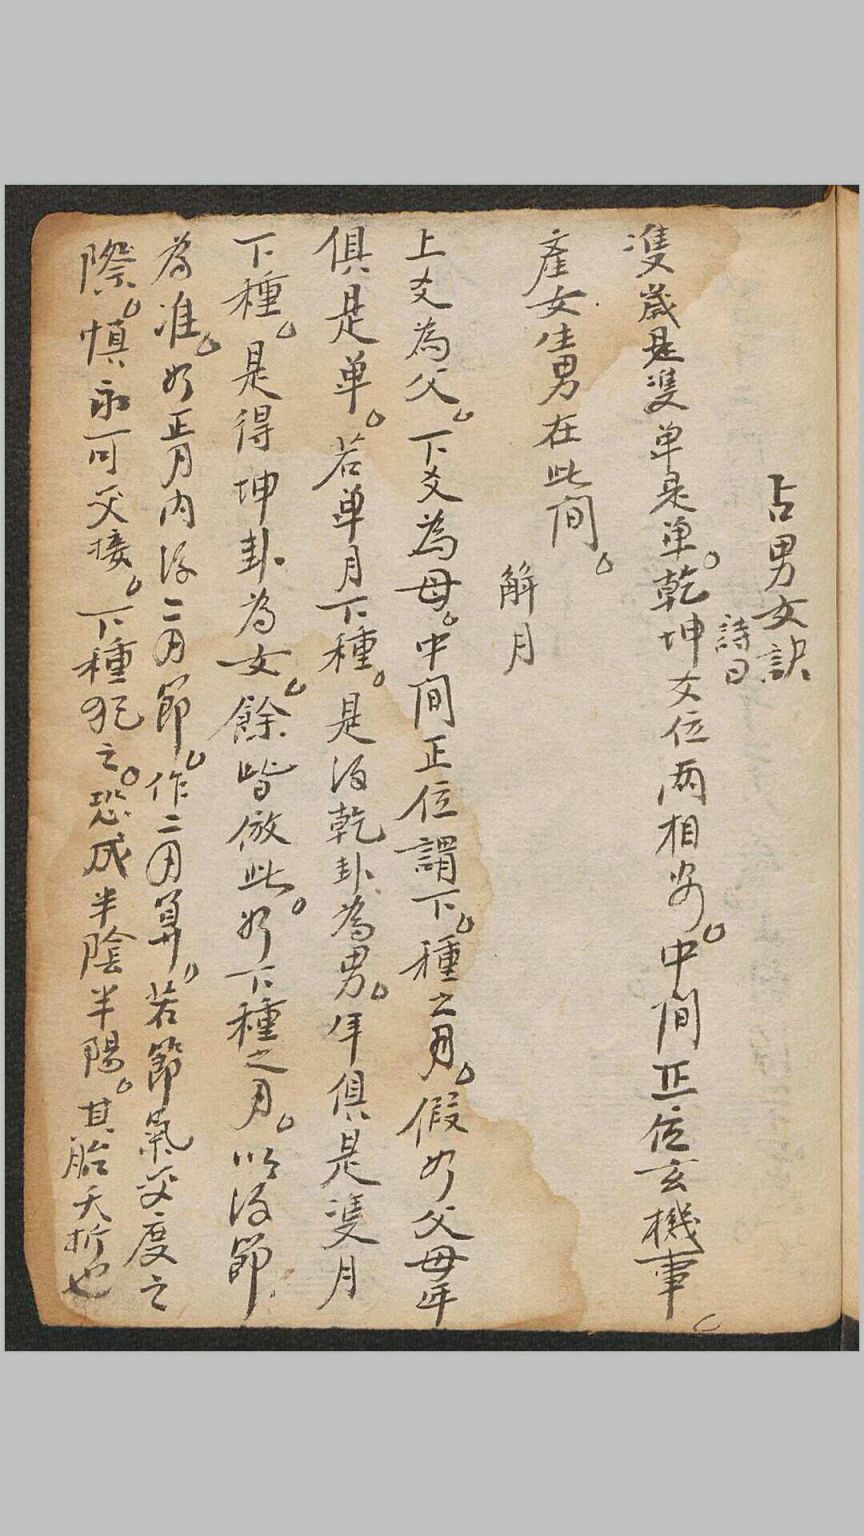 占男女訣
詩曰
隻歲是隻单是单。乾坤爻位两相安。中间正位玄機事。
產女生男在此间。
解曰
上爻為父。下爻為母。中间正位謂下。種之月。假如父母年
俱是单。若单月下種。是得乾卦為男。年俱是隻月
下種。是得坤卦為女。餘皆倣此。如下種之月。以得節
為准。如正月内得二月節。作二月算。若節氣交度之
際。慎不可交接。下種犯之。恐成半陰半陽。其胎夭折也